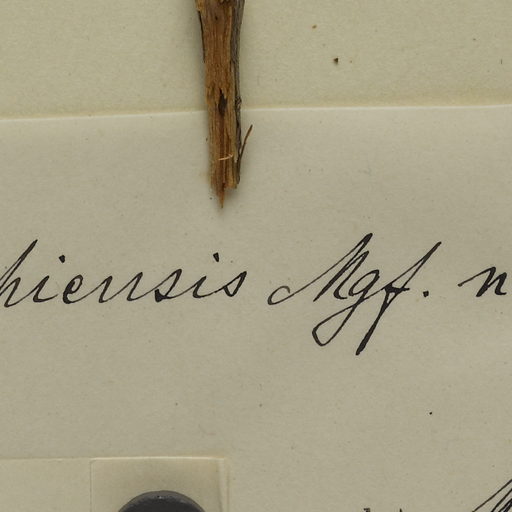 hiensis Mgf. n